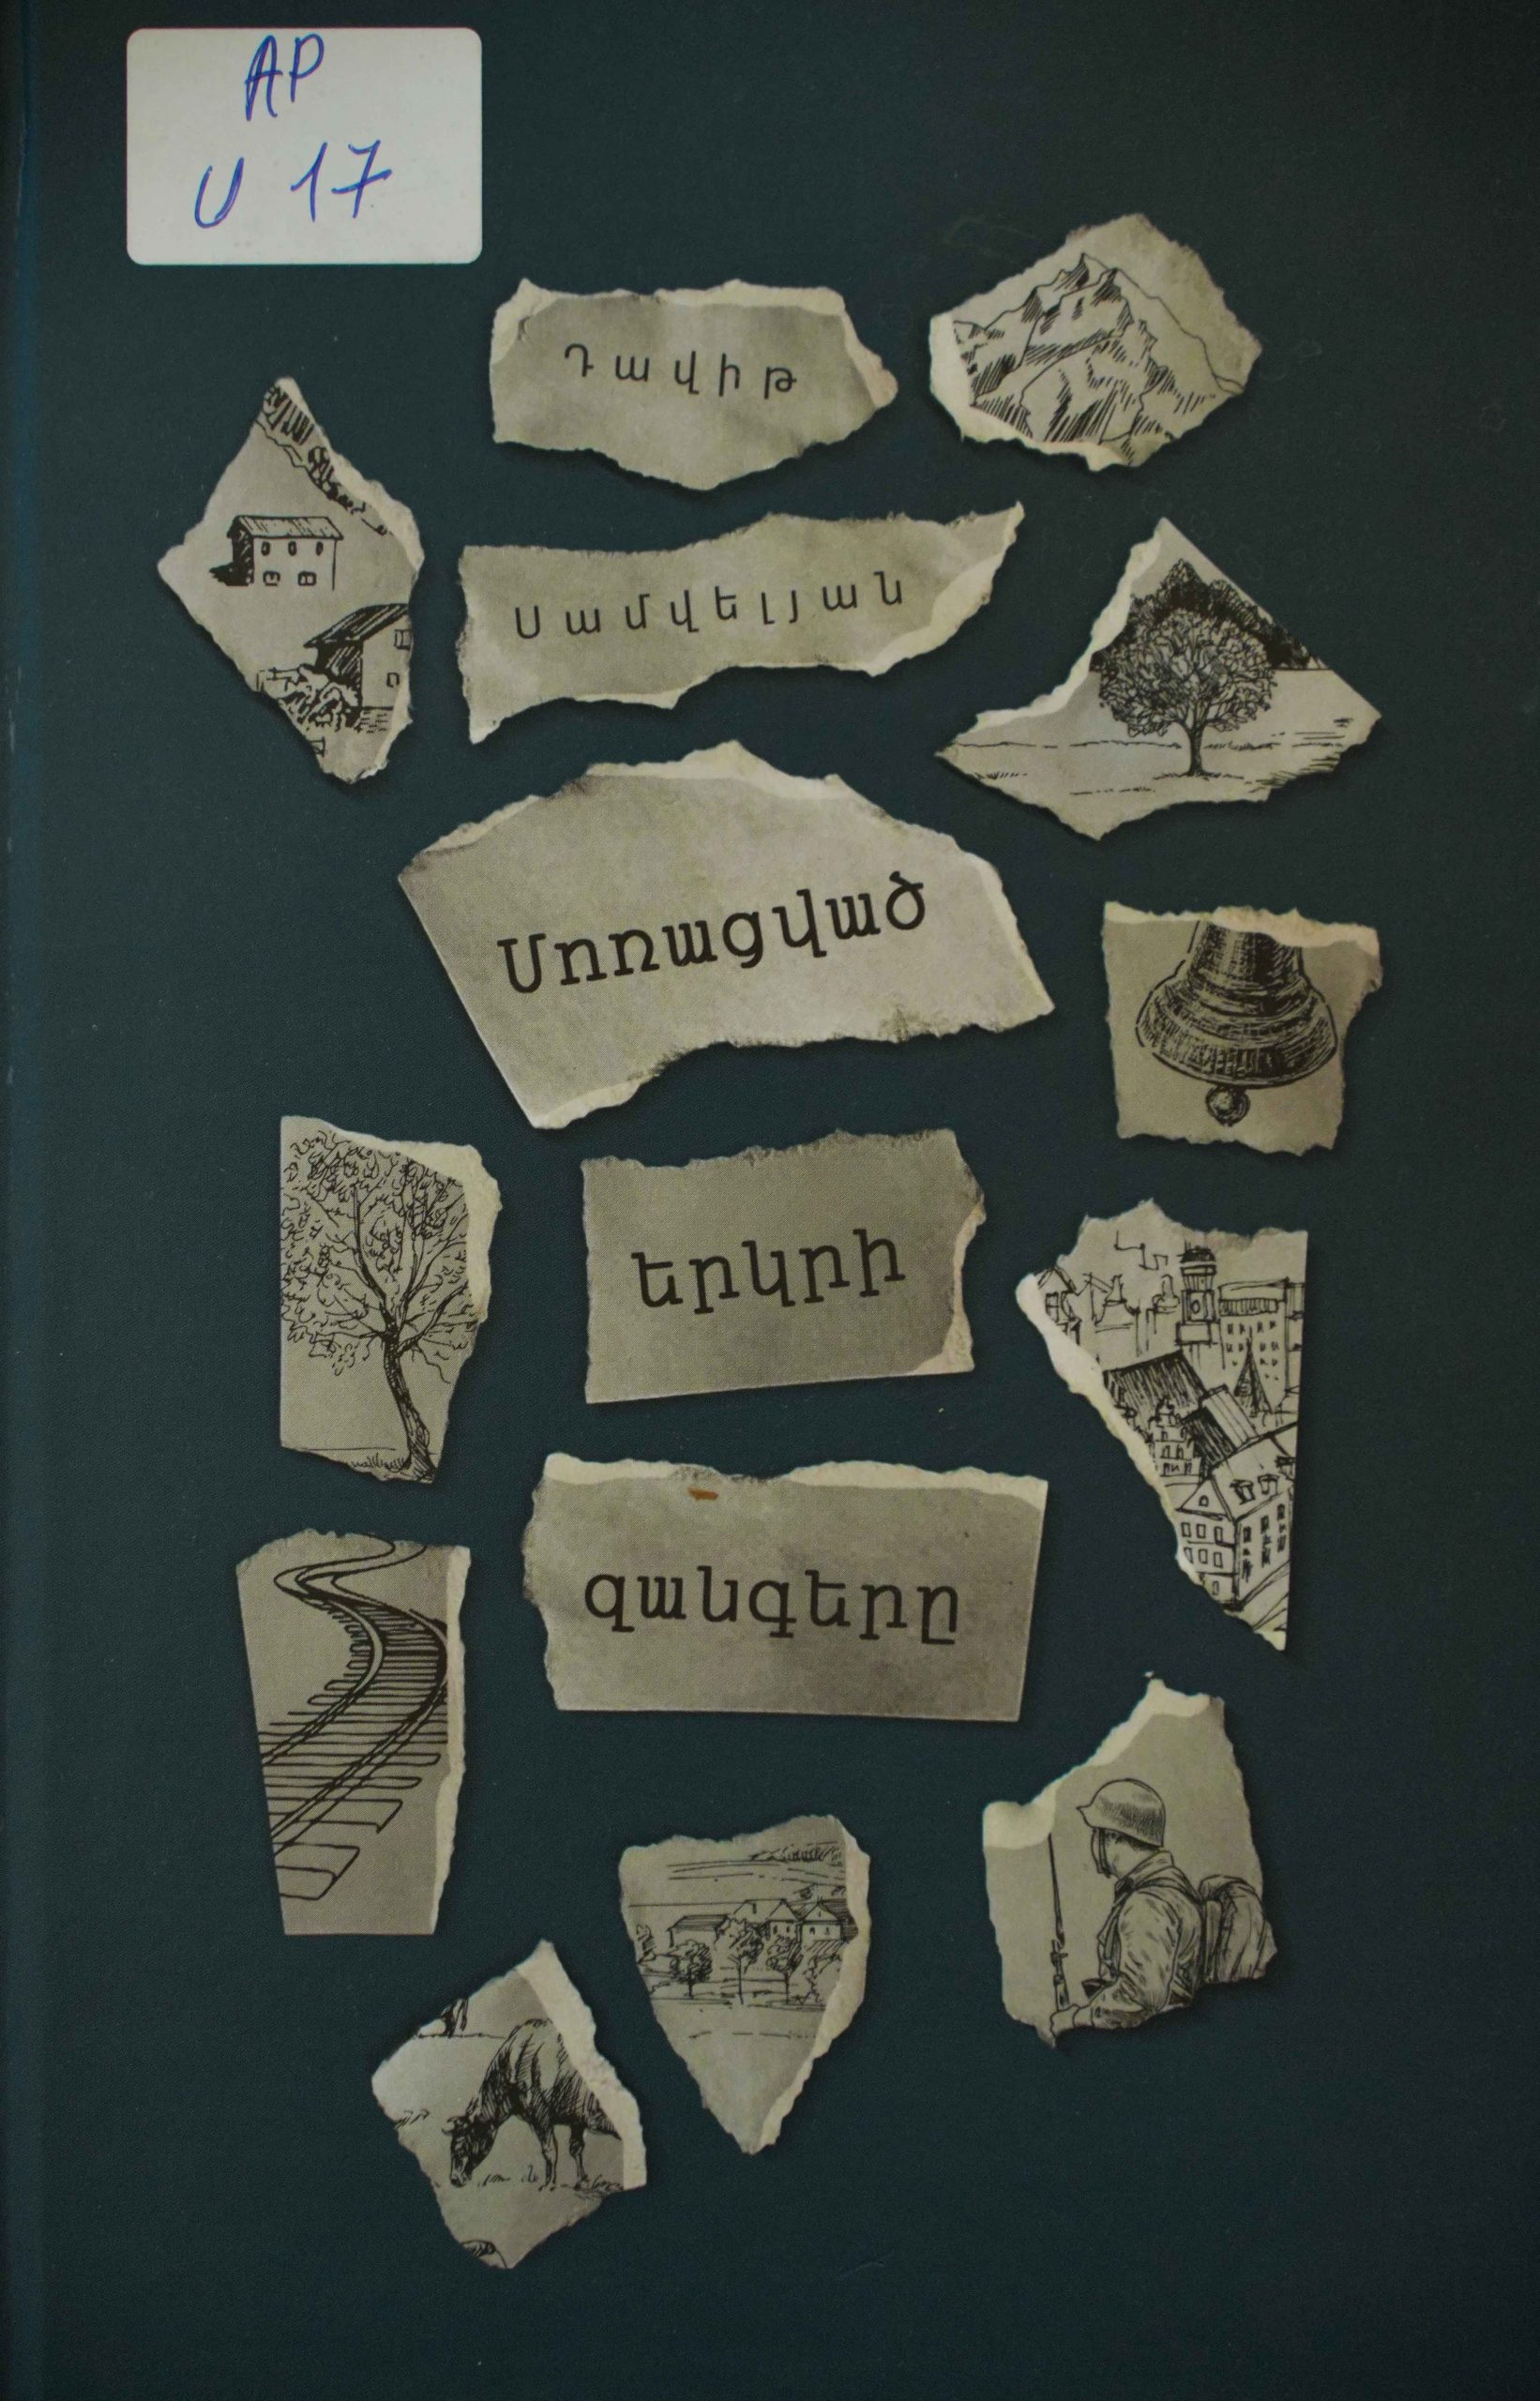 AP
Ս 17
Դավիթ
Սամվելյան
Մոռացված
երկրի
զանգերը